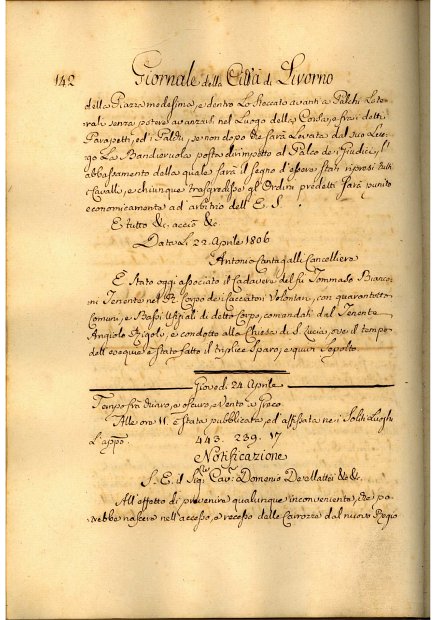 142 Giornale della Città di Livorno
della Piazza medesima, e dentro lo steccato avanti a Palchi Late-
rali senza potere avanzarsi nel Luogo della Corsa, e fra i detti
Parapetti, ed i Palchi, se non dopo che sarà Levata dal suo Luo-
go La Bandieruola posta dirimpetto al Palco de i Giudici, l'
abbassamento della quale sarà il segno d'essere stati ripresi tutti
i Cavalli, e chiunque trasgredisse gl' Ordini predetti sarà punito
economicamente ad arbitrio dell' E. S.
E tutto &c. acciò &c.
Data Lì 22. Aprile 1806
Antonio Cantagalli Cancelliere
È Stato oggi associato il Cadavere del fu Tommaso Bianco-
ni Tenente nel R. Corpo dei Cacciatori Volontari, con quarantotto
Comuni, e Bassi Ufiziali di detto Corpo, comandati dal Tenente
Angiolo, e condotto alla Chiesa di S. Lucia, ove il tempo
dell' esequie è stato fatto il triplice Sparo, e quivi Sepolto
Giovedì 24 Aprile
Tempo fra chiaro, e oscuro, e Vento a Greco
Alle ore 11. è stata pubblicata, ed affissata nei Soliti Luoghi
L' app. 443. 239. 17
Notificazione
S. E. il Sig. Cav. Domenio De &c. &c.
All' effetto di prevenire qualunque inconveniente, che po-
trebbe nascere nell' accesso, e recesso delle Carrozze dal nuovo Regio